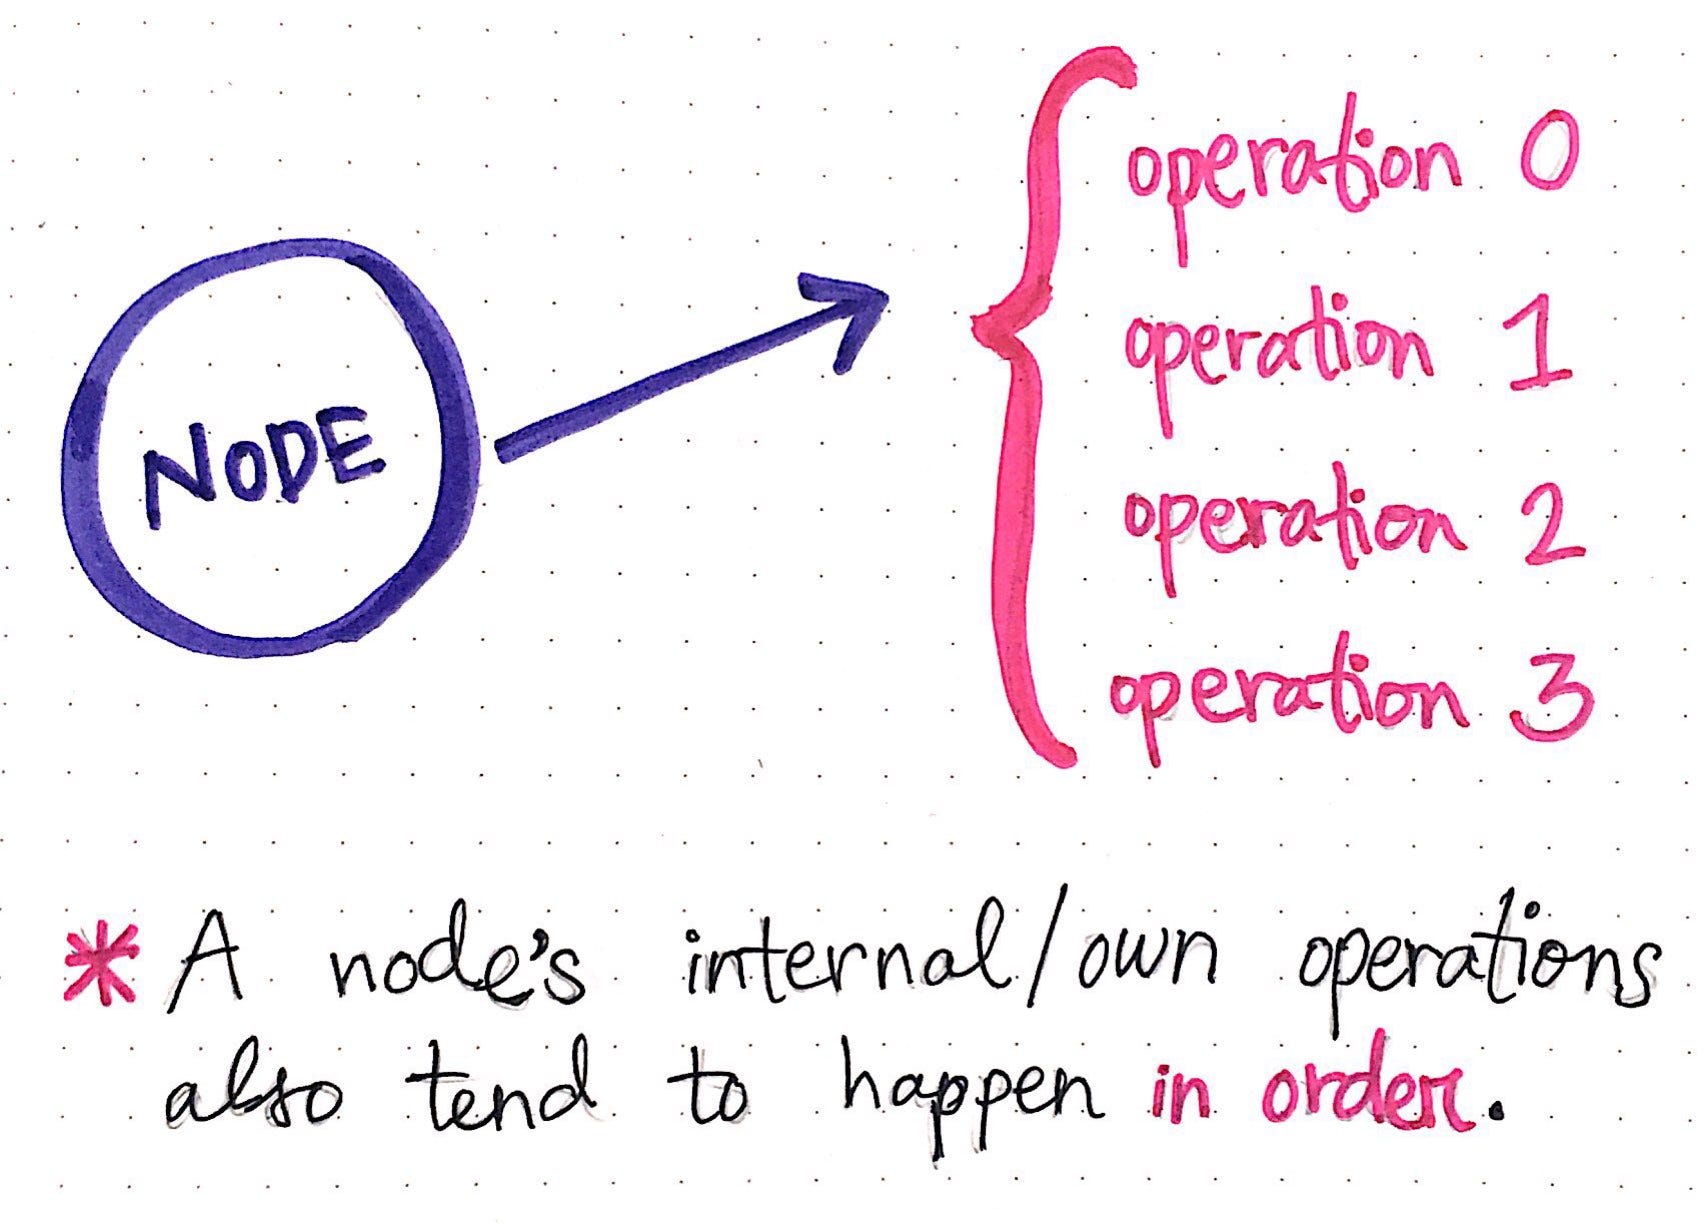 operation 0
operation 1
NODE
operation 2
operation 3
* A node's internal/own operations
also tend to happen in order.